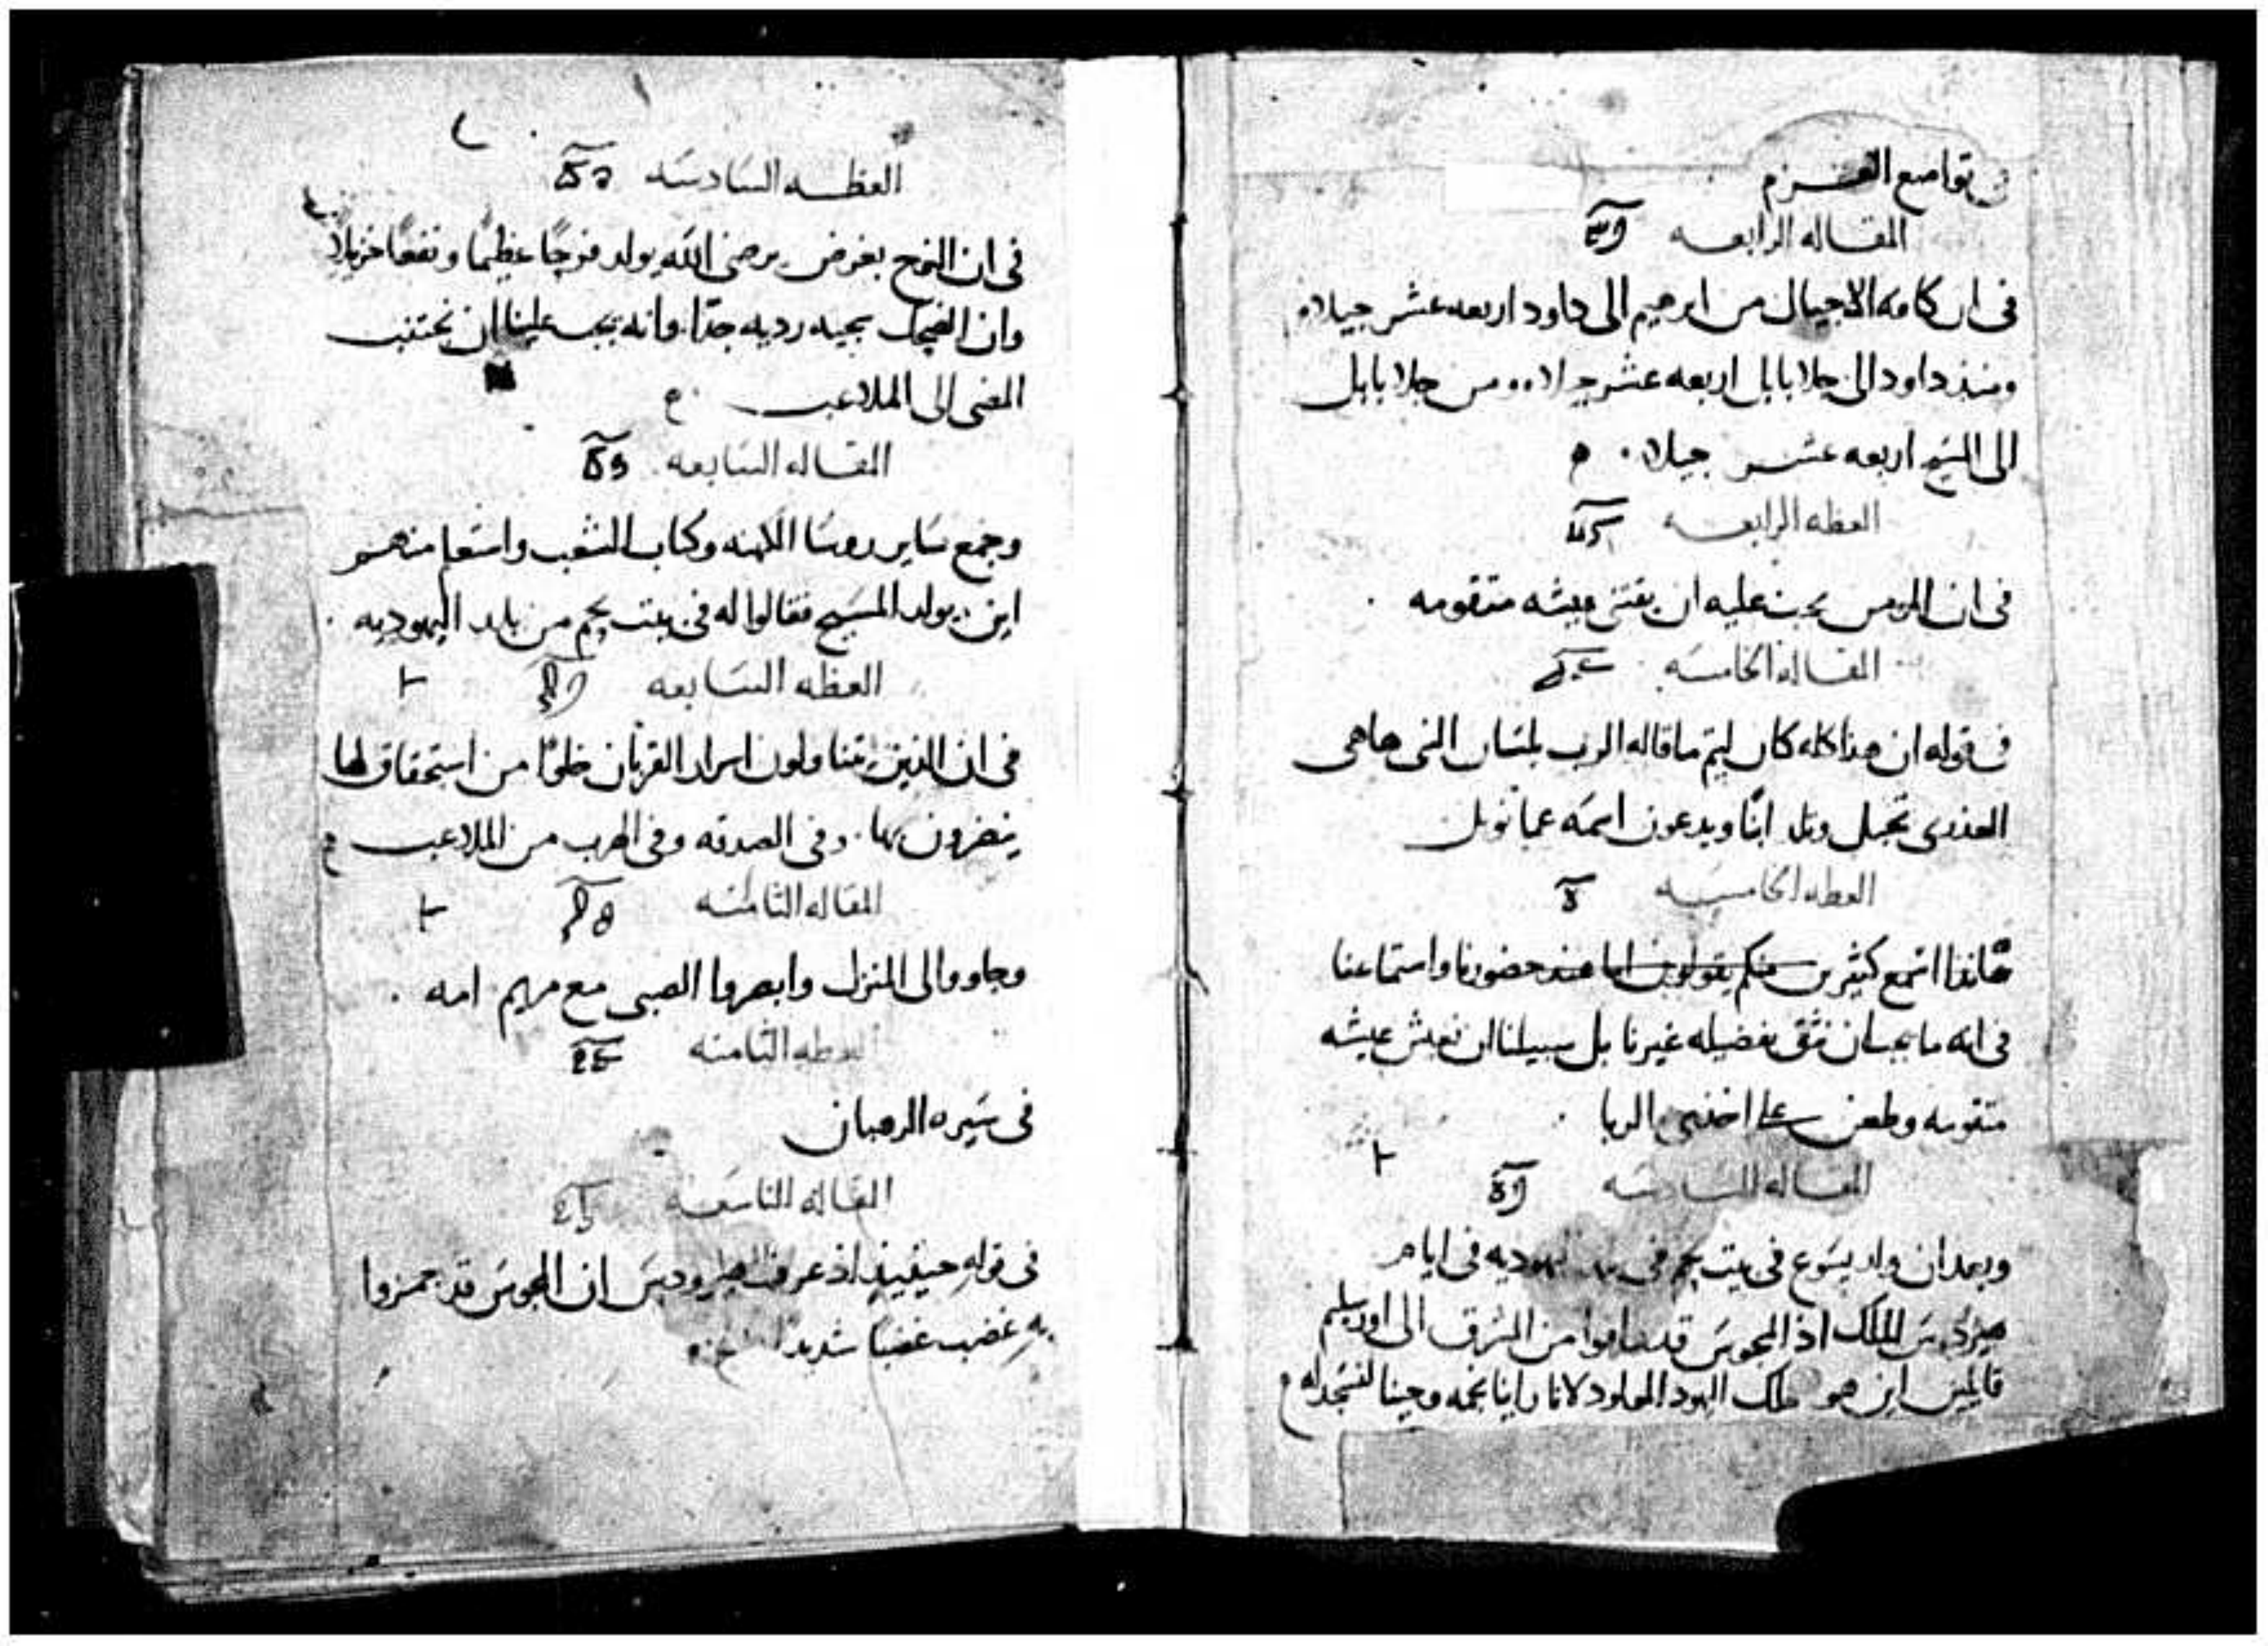 في تواضع العزم
المقاله الرابعه
في ان كافه الاجيال من ابرهيم الى داود اربعه عشر جيلاه
ومنذ داود الى جلا بابل اربعه عشر جيلاه ومن جلا بابل
الى المسيح اربعه عشر جيلا
العظه الرابعه
في ان المومن يجب عليه ان يقتني عيشه متقومه
المقاله الخامسه
في قوله ان هذا كله كان ليتم ما قاله الرب بلسان النبي هاهي
العذرى تحبل وتلد ابنًا ويدعون اسمه عمانويل
العظه الخامسه
هاندا اسمع كثيرين منكم يقولون اما عند حضورنا واستماعنا
في انه ما يجب ان نثق بفضيله غيرنا بل سبيلنا ان نعيش عيشه
متقومه وطعن على اخذي الربا
المقاله السادسه
وبعد ان ولد يسوع في بيت لحم في يهوديه في ايام
هيرودس الملك اذ المجوس قد وافوا من المشرق الى اورشليم
قايلين اين هو ملك اليهود المولود لانا راينا نجمه وجينا لنسجد له
العظه السادسه
في ان النوح بغرض يرضي الله يولد فرجًا عظيمًا ونفعًا جزيلا
وان الضحك سجيه رديه جدًا وانه يجب علينا ان نجتنب
المضي الى الملاعب
المقاله السابعه
وجمع ساير روسا الكهنه وكتاب الشعب واستعلم منهم
اين يولد المسيح فقالوا له في بيت لحم من بلد اليهوديه
العظه السابعه
في ان الذين يتناولون اسرار القربان خلوًا من استحقاق لها
ينضرون بها وفي الصدقه وفي الهرب من الملاعب
المقاله الثامنه
وجاووا الى المنزل وابصروا الصبي مع مريم امه
العظه الثامنه
في سيره الرهبان
المقاله التاسعه
في قوله حينيذ اذ عرف هيرودس ان المجوس قد همزوا
به غضب غضبًا شديدًا